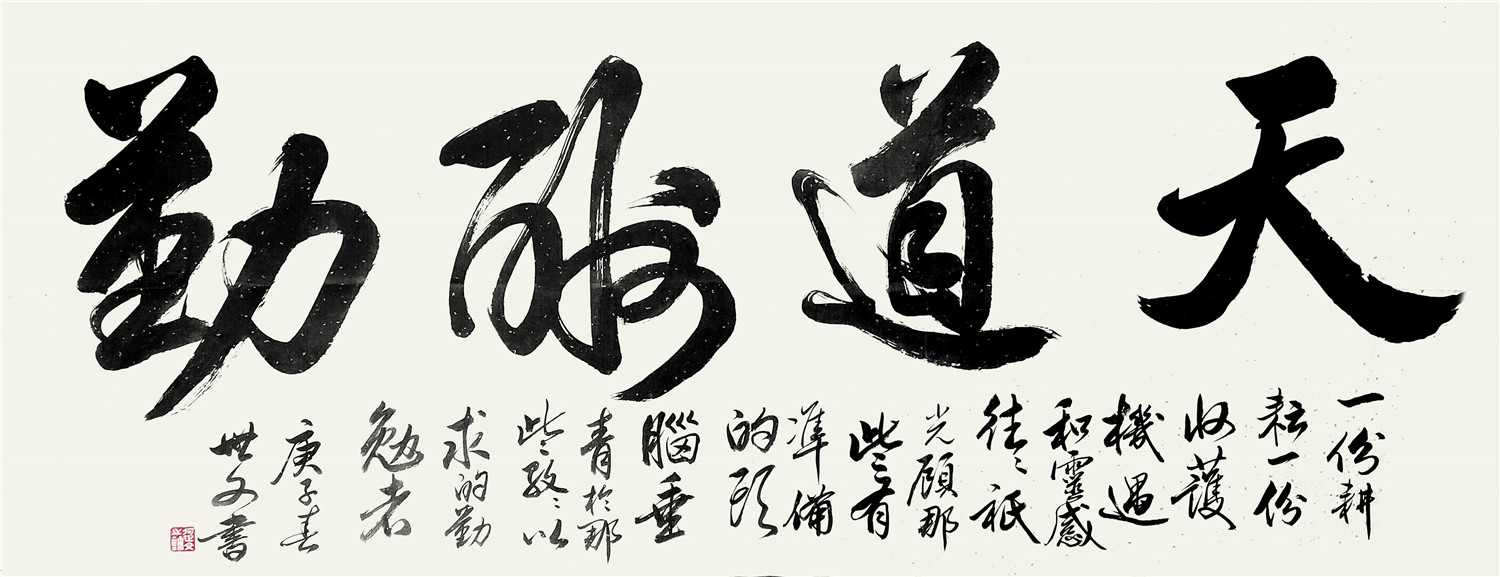 天道酬勤
一份耕
耘一份
收穫
機遇
和靈感
往〻祇
光顧那
些有
準備
的頭
腦垂
青於那
些孜〻以
求的勤
勉者
庚子春
世文書